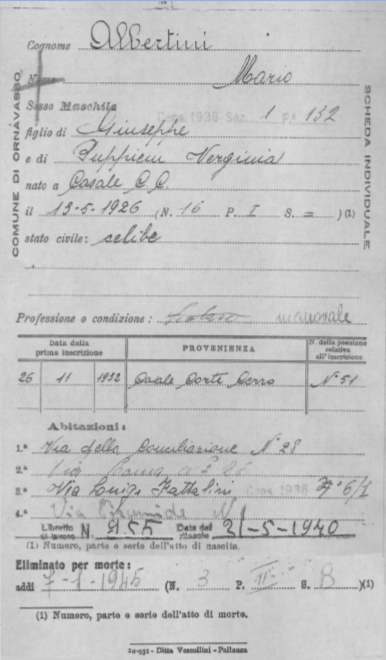 Cognome Albertini
Nome Mario
Sesso Maschile Cens. 1936 Sez. 1 F.° 132
figlio di Giuseppe
e di Verginia
nato a Casale C. C.
il 13-5-1926 (N. 16 P. I S. = ) (1)
stato civile: celibe
Professione o condizione: manovale
COMUNE DI ORNAVASSO
SCHEDA INDIVIDUALE
Data della prima inscrizione
PROVENIENZA
N. della posizione relativa all'inscrizione
26 11 1932 Casale Corte Cerro N° 51
Abitazioni:
1.ª Via della Conciliazione N° 28
2.ª Via Roma
3.ª Via Cens. 1936
4.ª Via
Libretto di lavoro N. 255 Data del rilascio 31-5-1940
(1) Numero, parte e serie dell'atto di nascita.
Eliminato per morte:
addì 7-1-1945 (N. 3 P. II S. B )(1)
(1) Numero, parte e serie dell'atto di morte.
Ditta Vercellini - Pallanza